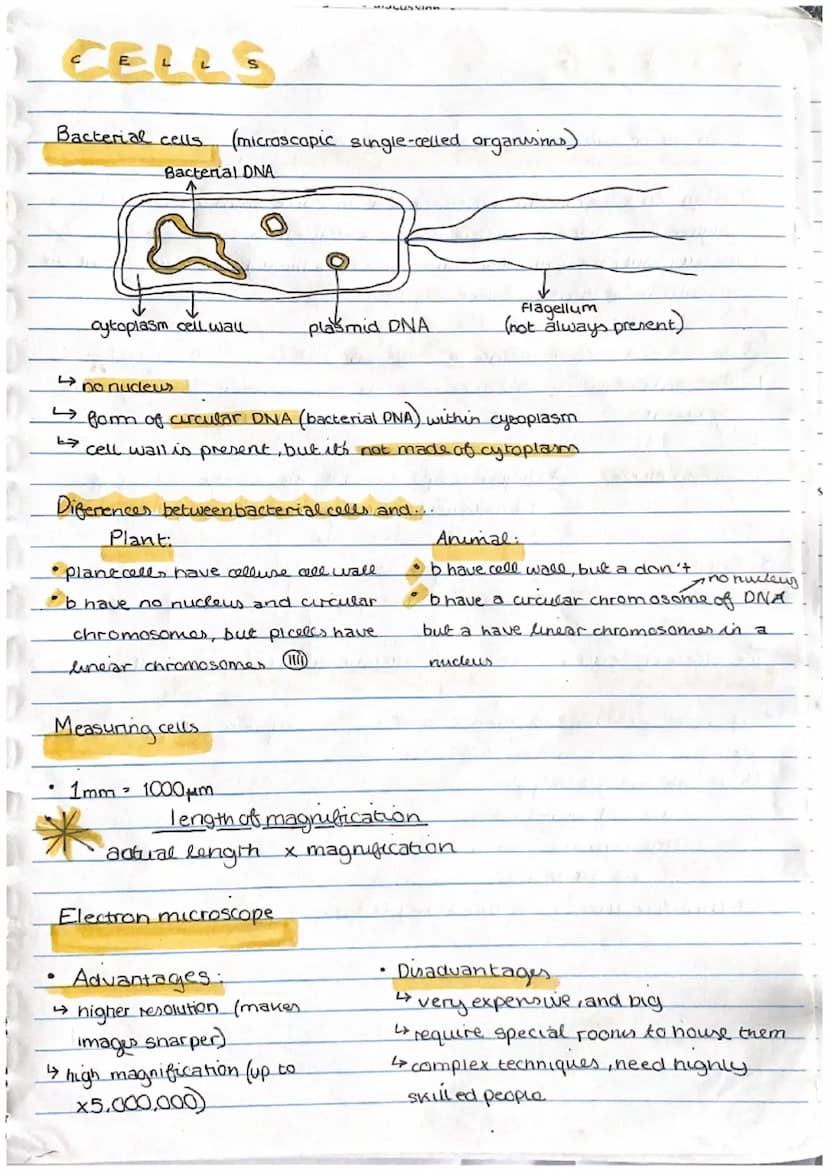 CELLS
Bacterial cells (microscopic single-celled organisms)
Bacterial DNA
cytoplasm cell wall plasmid DNA
Flagellum
(not always present)
↳ no nucleus
↳ form of circular DNA (bacterial DNA) within cytoplasm
↳ cell wall is present, but it's not made of cytoplasm
Diferences between bacterial cells and...
Plant:
• plant cells have celluse cell wall
• b have no nucleus and circular
chromosomes, but pl cells have
linear chromosomes
Animal:
• b have cell wall, but a don't
→ no nucleus
• b have a circular chromosome of DNA
but a have linear chromosomes in a
nucleus
Measuring cells
• 1mm = 1000µm
length of magnification
actual length x magnification
Electron microscope
• Advantages:
↳ higher resolution (makes
images sharper)
↳ high magnification (up to
x5,000,000)
• Disadvantages
↳ very expensive, and big
↳ require special rooms to house them
↳ complex techniques, need highly
skilled people